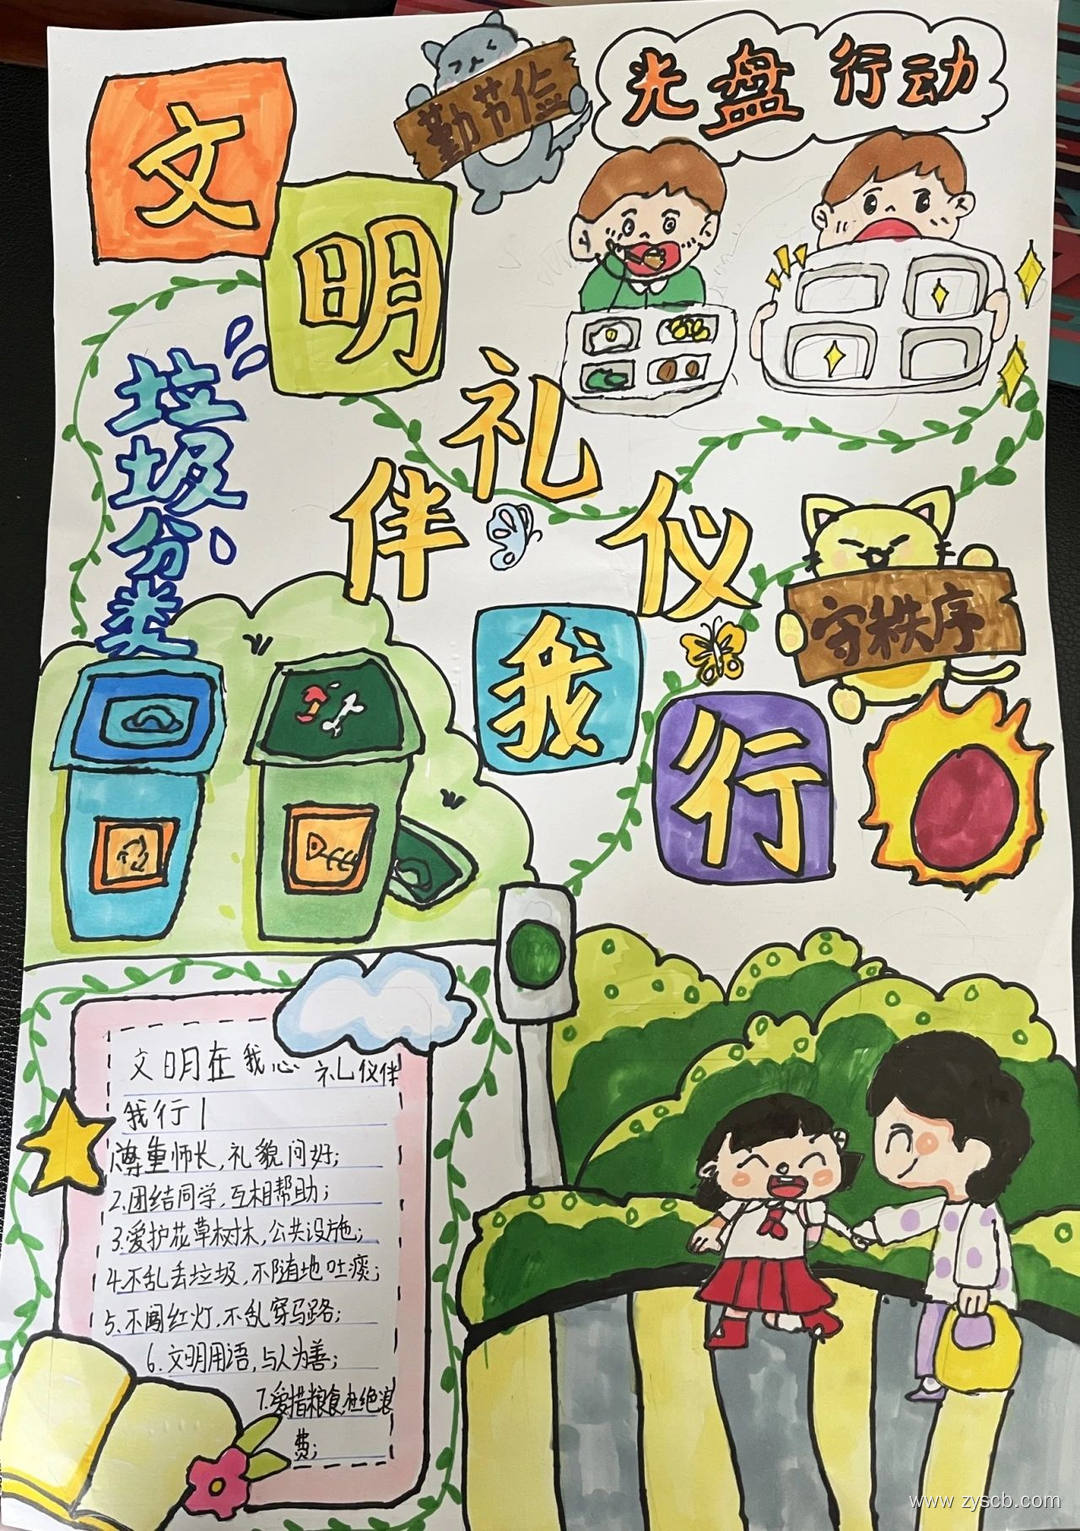 文明
礼仪
伴
我行
勤节俭
光盘行动
垃圾分类
守秩序
文明在我心 礼仪伴
我行!
1尊重师长,礼貌问好;
2.团结同学,互相帮助;
3.爱护花草树木,公共设施;
4.不乱丢垃圾,不随地吐痰;
5.不闯红灯,不乱穿马路;
6.文明用语,与人为善;
7.爱惜粮食杜绝浪
费;
www.zyscb.com